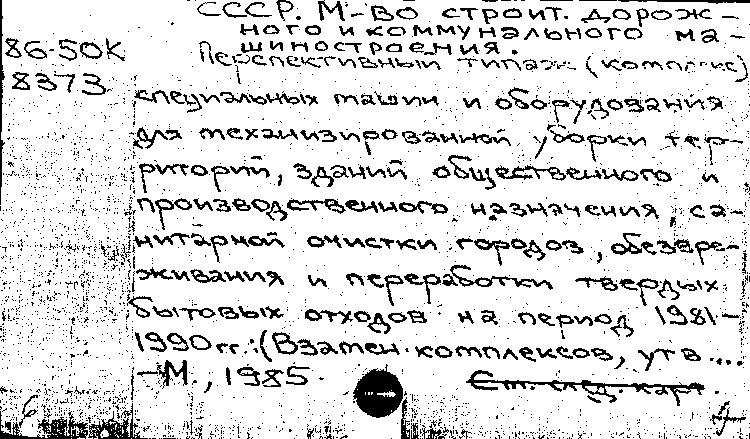 СССР. М-во строит. дорож-
ного и коммунального ма-
86-50К шиностроения.
8373 Перспективный типаж (комплекс)
специальных машин и оборудования
для механизированной уборки тер-
риторий, зданий общественного и
производственного назначения, са-
нитарной очистки городов, обезвре-
живания и переработки твердых
бытовых отходов на период 1981-
1990 гг.:(Взамен комплексов, утв....
-М., 1985.
См. след. карт.
6